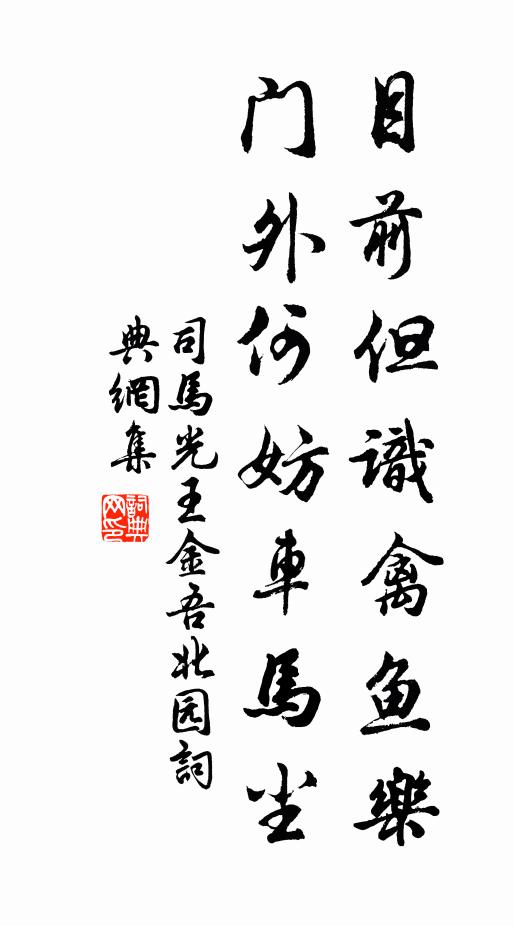 目前但識禽鱼樂
门外何妨車馬尘
司馬光王金吾北园詞
典網集
詞典网印